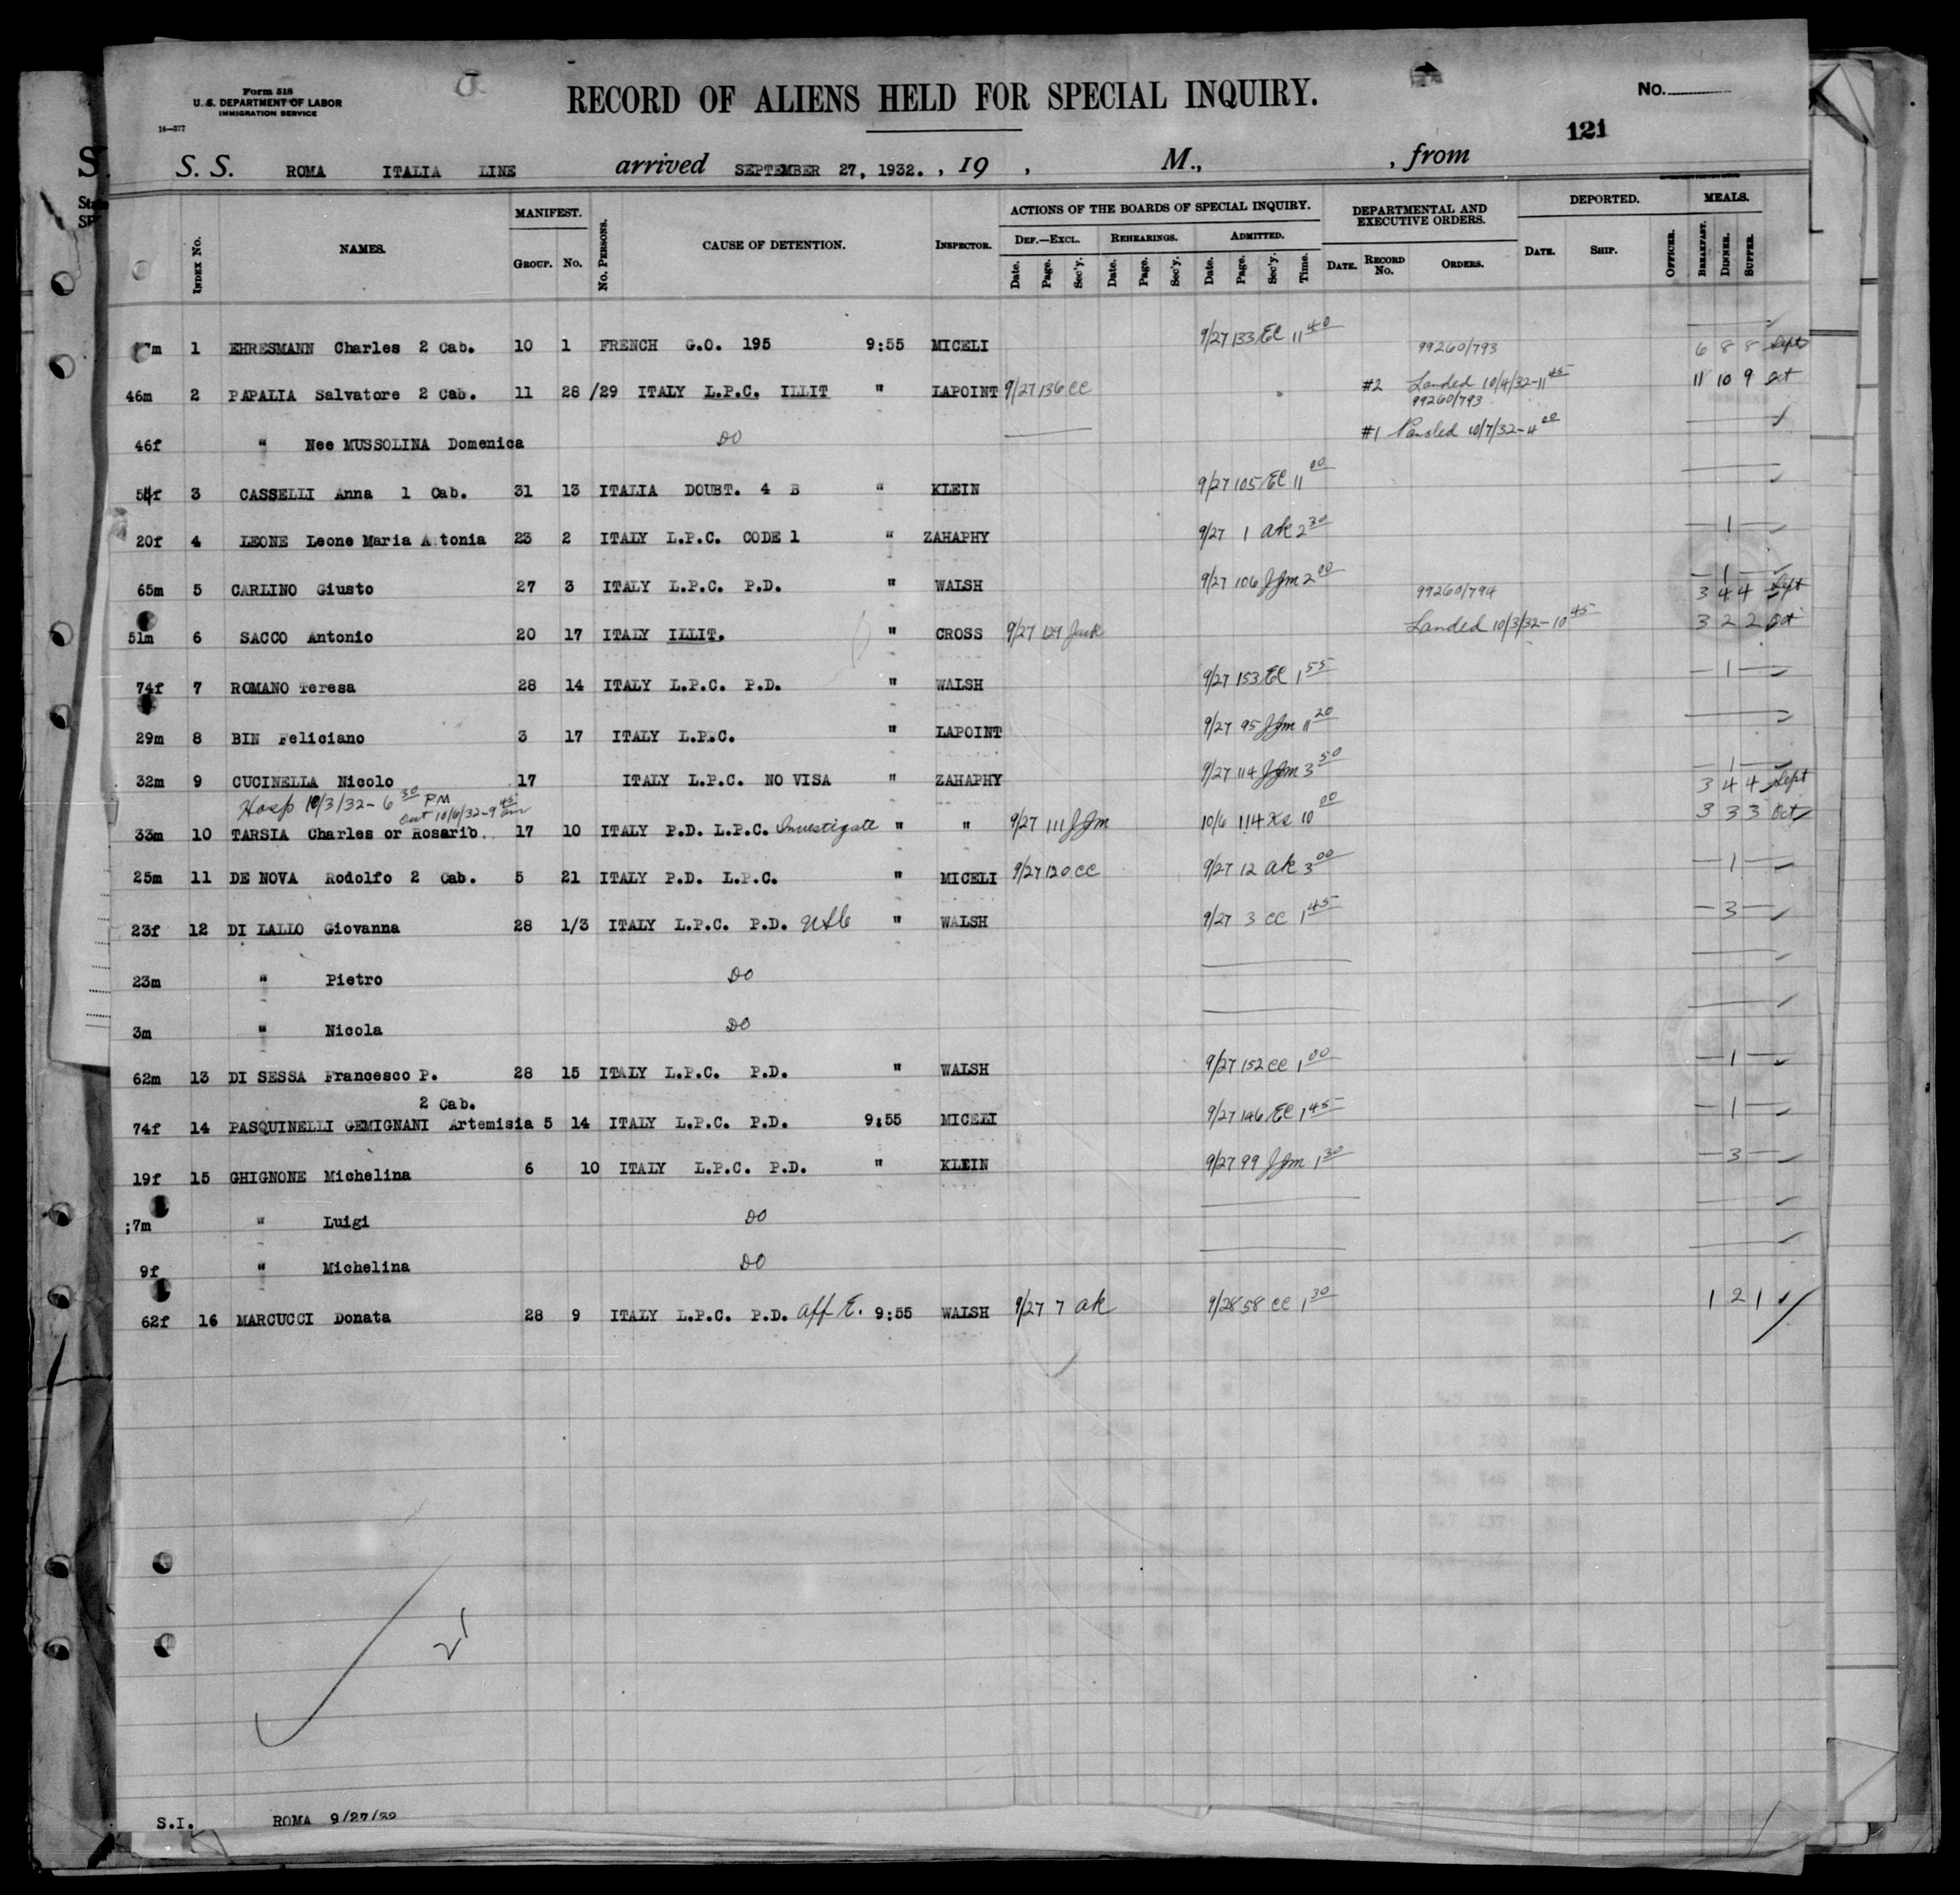 Form 518
U. S. DEPARTMENT OF LABOR
IMMIGRATION SERVICE
14—377
RECORD OF ALIENS HELD FOR SPECIAL INQUIRY.
No.
121
S. S. ROMA ITALIA LINE arrived SEPTEMBER 27, 1932. , 19 , M., , from
INDEX No. NAMES. MANIFEST. GROUP. No. No. PERSONS. CAUSE OF DETENTION. INSPECTOR. ACTIONS OF THE BOARDS OF SPECIAL INQUIRY. DEF.—EXCL. Date. Page. Sec'y. REHEARINGS. Date. Page. Sec'y. ADMITTED. Date. Page. Sec'y. Time. DEPARTMENTAL AND EXECUTIVE ORDERS. DATE. RECORD No. ORDERS. DEPORTED. DATE. SHIP. OFFICER. MEALS. BREAKFAST. DINNER. SUPPER.
7m 1 EHRESMANN Charles 2 Cab. 10 1 FRENCH G.O. 195 9:55 MICELI 9/27 133 EC 11 40 99260/793 6 8 8 Sept
46m 2 PAPALIA Salvatore 2 Cab. 11 28 /29 ITALY L.P.C. ILLIT " LAPOINT 9/27 136 CC #2 Landed 10/4/32-11 45 11 10 9 Oct
99260/793
46f " Nee MUSSOLINA Domenica DO #1 10/7/32-4 00
54f 3 CASSELLI Anna 1 Cab. 31 13 ITALIA DOUBT. 4 B " KLEIN 9/27 105 EC 11 00
20f 4 LEONE Leone Maria A tonia 23 2 ITALY L.P.C. CODE 1 " ZAHAPHY 9/27 1 ak 2 30 1
65m 5 CARLINO Giusto 27 3 ITALY L.P.C. P.D. " WALSH 9/27 106 JJM 2 00 1
99260/794 3 4 4 Sept
51m 6 SACCO Antonio 20 17 ITALY ILLIT. " CROSS 9/27 129 Landed 10/3/32-10 45 3 2 2 Oct
74f 7 ROMANO Teresa 28 14 ITALY L.P.C. P.D. " WALSH 9/27 153 EC 1 55 1
29m 8 BIN Feliciano 3 17 ITALY L.P.C. " LAPOINT 9/27 95 JJM 11 20
32m 9 CUCINELLA Nicolo 17 ITALY L.P.C. NO VISA " ZAHAPHY 9/27 114 JJM 3 50 1
Hosp 10/3/32-6 30 PM Out 10/6/32-9 45 am 3 4 4 Sept
33m 10 TARSIA Charles or Rosario. 17 10 ITALY P.D. L.P.C. Investigate " " 9/27 111 JJM 10/6 114 10 00 3 3 3 Oct
25m 11 DE NOVA Rodolfo 2 Cab. 5 21 ITALY P.D. L.P.C. " MICELI 9/27 120 CC 9/27 12 ak 3 00 1
23f 12 DI LALLO Giovanna 28 1/3 ITALY L.P.C. P.D. " WALSH 9/27 3 CC 1 45 3
23m " Pietro DO
3m " Nicola DO
62m 13 DI SESSA Francesco P. 28 15 ITALY L.P.C. P.D. " WALSH 9/27 152 CC 1 00 1
2 Cab.
74f 14 PASQUINELLI GEMIGNANI Artemisia 5 14 ITALY L.P.C. P.D. 9:55 MICELI 9/27 146 EC 1 45 1
19f 15 GHIGNONE Michelina 6 10 ITALY L.P.C. P.D. " KLEIN 9/27 99 JJM 1 30 3
;7m " Luigi DO
9f " Michelina DO
62f 16 MARCUCCI Donata 28 9 ITALY L.P.C. P.D. aff E. 9:55 WALSH 9/27 7 ak 9/28 58 CC 1 30 1 2 1
21
S.I. ROMA 9/27/32